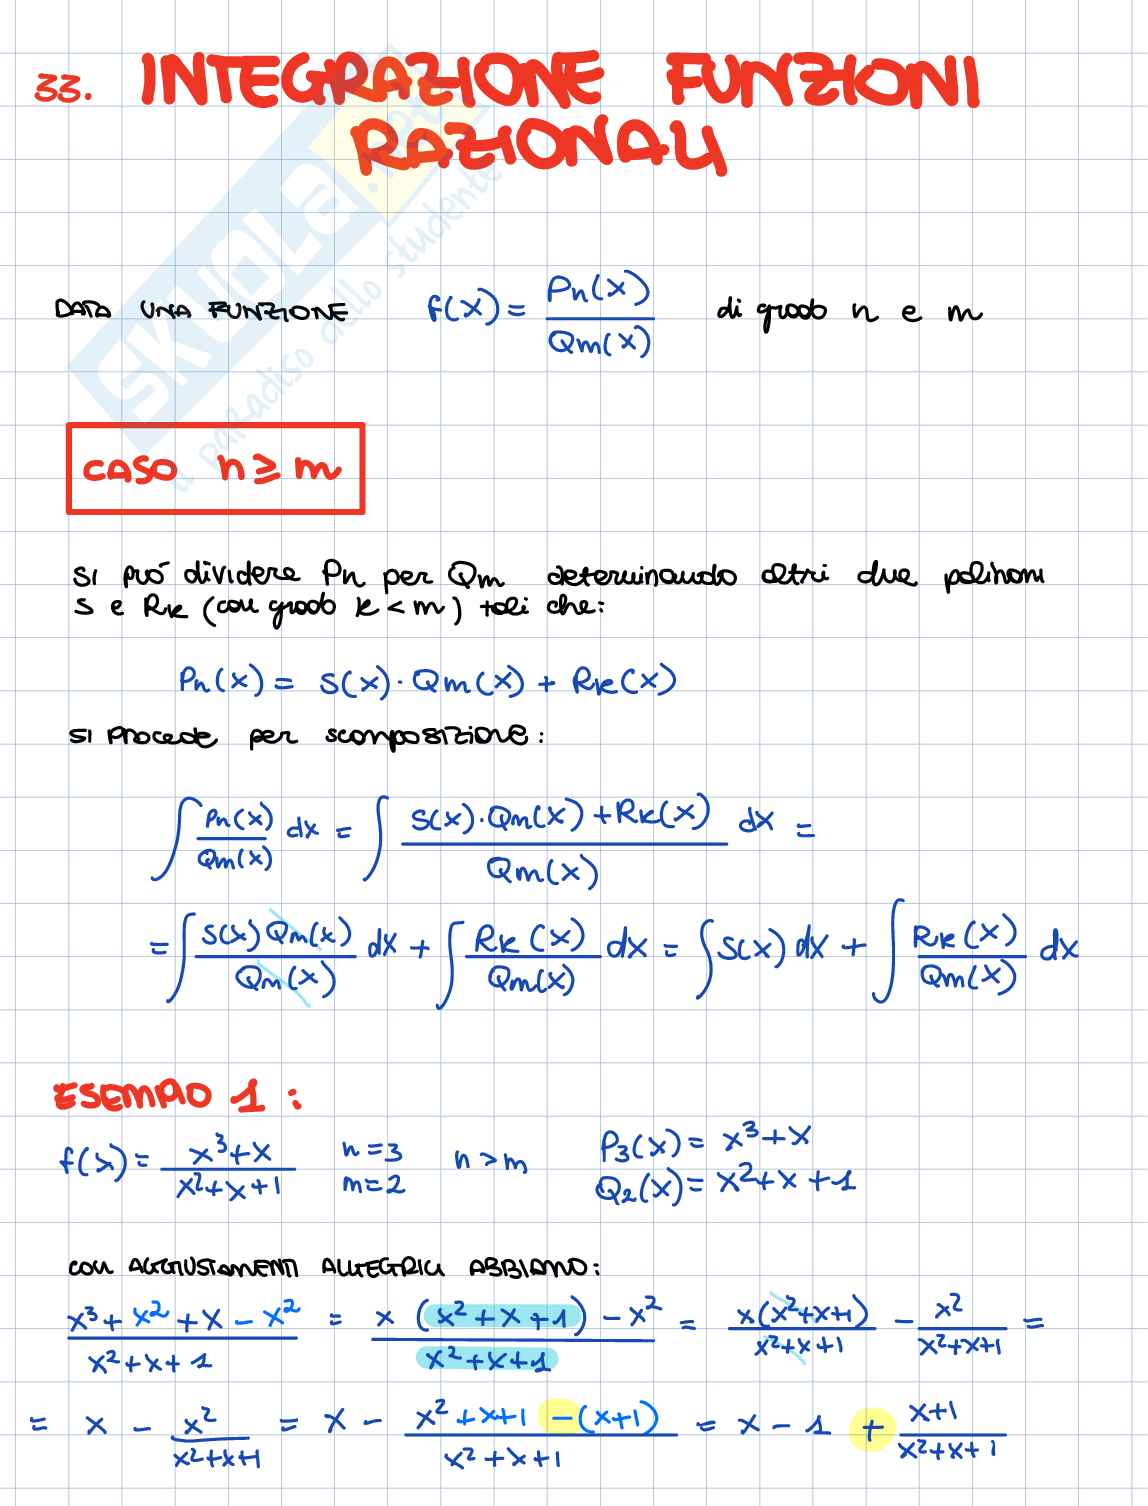 33. INTEGRAZIONE FUNZIONI
RAZIONALI
SKUOLA.net
il paradiso dello studente
DATA UNA FUNZIONE f(x) = Pn(x) / Qm(x) di grado n e m
CASO n ≥ m
SI può dividere Pn per Qm determinando altri due polinomi
S e Rk (con grado k < m) tali che:
Pn(x) = S(x) · Qm(x) + Rk(x)
SI PROCEDE per scomposizione:
∫ Pn(x)/Qm(x) dx = ∫ (S(x)·Qm(x) + Rk(x))/Qm(x) dx =
= ∫ S(x)Qm(x)/Qm(x) dx + ∫ Rk(x)/Qm(x) dx = ∫ S(x) dx + ∫ Rk(x)/Qm(x) dx
ESEMPIO 1:
f(x) = (x³+x)/(x²+x+1) n=3 m=2 n>m P₃(x) = x³+x Q₂(x) = x²+x+1
con AGGIUSTAMENTI ALGEBRICI ABBIAMO:
(x³ + x² + x − x²)/(x²+x+1) = (x (x²+x+1) − x²)/(x²+x+1) = x(x²+x+1)/(x²+x+1) − x²/(x²+x+1) =
= x − x²/(x²+x+1) = x − (x²+x+1 −(x+1))/(x²+x+1) = x − 1 + (x+1)/(x²+x+1)